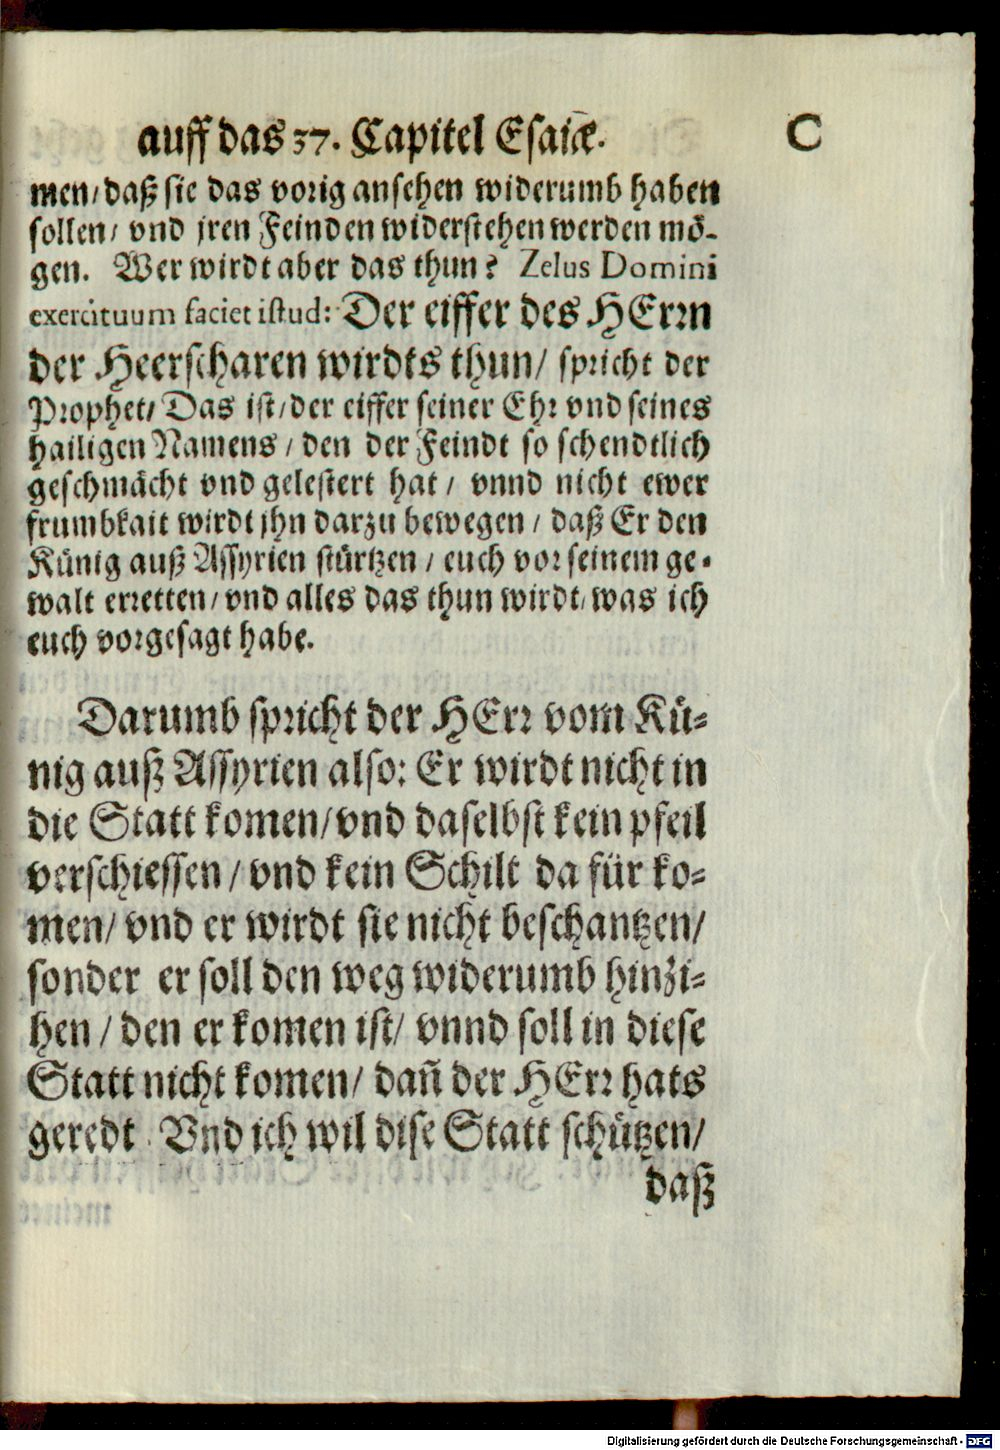 auff das 37. Capitel Esaiæ. C
men/ daß sie das vorig ansehen widerumb haben
sollen/ vnd jren Feinden widerstehen werden mö-
gen. Wer wirdt aber das thun? Zelus Domini
exercituum faciet istud: Der eiffer des HErrn
der Heerscharen wirdts thun/ spricht der
Prophet/ Das ist/ der eiffer seiner Ehr vnd seines
hailigen Namens/ den der Feindt so schendtlich
geschmächt vnd gelestert hat/ vnnd nicht ewer
frumbkait wirdt jhn darzu bewegen/ daß Er den
Künig auß Assyrien stürtzen/ euch vor seinem ge-
walt erretten/ vnd alles das thun wirdt/ was ich
euch vorgesagt habe.
Darumb spricht der HErr vom Kü-
nig auß Assyrien also: Er wirdt nicht in
die Statt komen/ vnd daselbst kein pfeil
verschiessen/ vnd kein Schilt da für ko-
men/ vnd er wirdt sie nicht beschantzen/
sonder er soll den weg widerumb hinzi-
hen/ den er komen ist/ vnnd soll in diese
Statt nicht komen/ dañ der HErr hats
geredt. Vnd ich wil dise Statt schützen/
daß
Digitalisierung gefördert durch die Deutsche Forschungsgemeinschaft - DFG